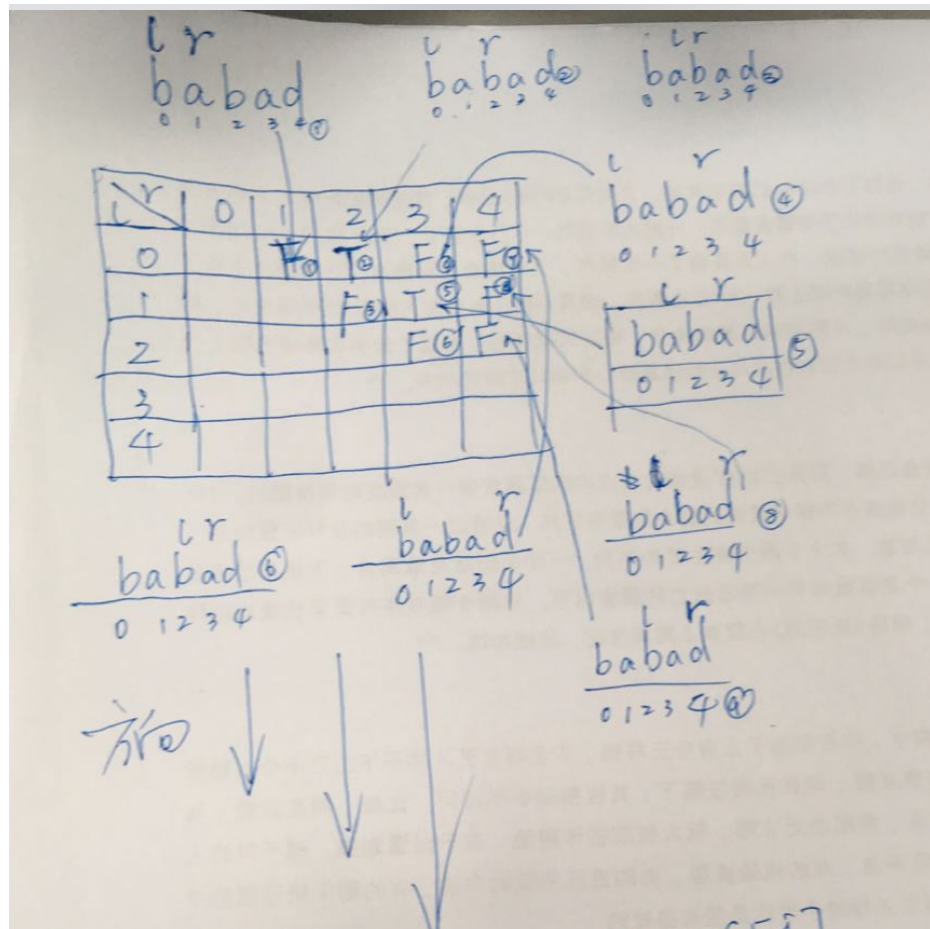 l r
babad
0 1 2 3 4 ①
l r
babad ②
0 1 2 3 4
l r
babad ③
0 1 2 3 4
l r 0 1 2 3 4
0 F① T② F④ F⑦
1 F③ T⑤ F⑧
2 F⑥ F
3
4
l r
babad ④
0 1 2 3 4
l r
babad ⑤
0 1 2 3 4
l r
babad ⑥
0 1 2 3 4
l r
babad
0 1 2 3 4
l r
babad ⑧
0 1 2 3 4
l r
babad
0 1 2 3 4 ⑨
方向